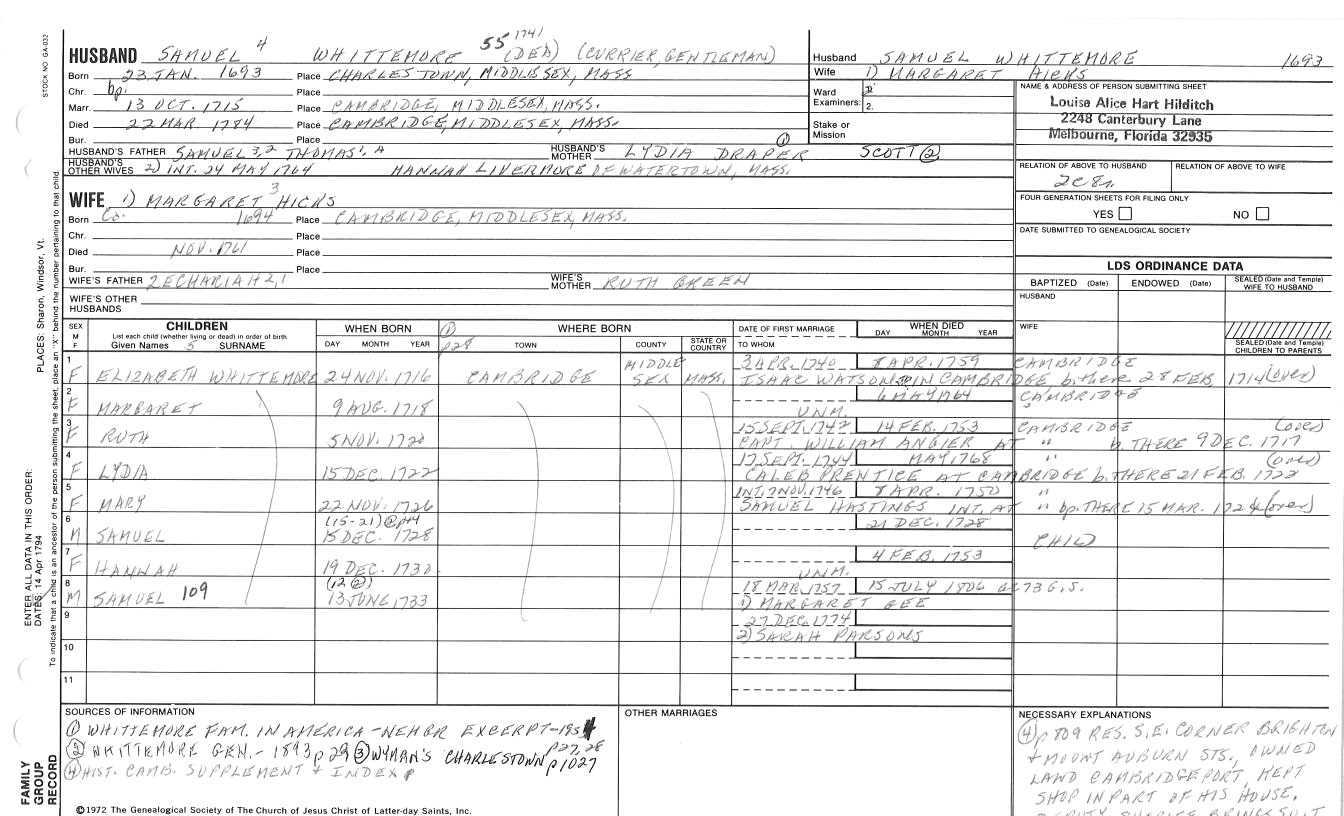 STOCK NO. GA-032
PLACES: Sharon, Windsor, Vt.
ENTER ALL DATA IN THIS ORDER:
DATES: 14 Apr 1794
To indicate that a child is an ancestor of the person submitting the sheet, place an "X" behind the number pertaining to that child.
FAMILY GROUP RECORD
55 1741
HUSBAND SAMUEL 4 WHITTEMORE (DEA) (CURRIER, GENTLEMAN)
Born 23 JAN. 1693 Place CHARLESTOWN, MIDDLESEX, MASS
Chr. bp. Place
Marr. 13 OCT. 1715 Place CAMBRIDGE, MIDDLESEX, MASS.
Died 22 MAR. 1784 Place CAMBRIDGE, MIDDLESEX, MASS.
Bur. Place
HUSBAND'S FATHER SAMUEL 3,2 THOMAS 1, A HUSBAND'S MOTHER LYDIA DRAPER ① SCOTT ②
HUSBAND'S OTHER WIVES 2) INT. 24 MAY 1764 HANNAH LIVERMORE OF WATERTOWN, MASS.
Husband SAMUEL WHITTEMORE 1693
Wife 1) MARGARET HICKS
Ward Examiners: 1. 2.
Stake or Mission
NAME & ADDRESS OF PERSON SUBMITTING SHEET
Louise Alice Hart Hilditch
2248 Canterbury Lane
Melbourne, Florida 32935
RELATION OF ABOVE TO HUSBAND RELATION OF ABOVE TO WIFE
2C8r.
FOUR GENERATION SHEETS FOR FILING ONLY
YES NO
DATE SUBMITTED TO GENEALOGICAL SOCIETY
WIFE 1) MARGARET 3 HICKS
Born Ca. 1694 Place CAMBRIDGE, MIDDLESEX, MASS.
Chr. Place
Died NOV. 1761 Place
Bur. Place
WIFE'S FATHER ZECHARIAH 2,1 WIFE'S MOTHER RUTH GREEN
WIFE'S OTHER HUSBANDS
LDS ORDINANCE DATA
BAPTIZED (Date) ENDOWED (Date) SEALED (Date and Temple) WIFE TO HUSBAND
HUSBAND
WIFE
SEALED (Date and Temple) CHILDREN TO PARENTS
SEX M F CHILDREN WHEN BORN WHERE BORN DATE OF FIRST MARRIAGE WHEN DIED
List each child (whether living or dead) in order of birth.
Given Names 5 SURNAME DAY MONTH YEAR ① p28 TOWN COUNTY STATE OR COUNTRY TO WHOM DAY MONTH YEAR
1 MIDDLE 3 APR. 1740 8 APR. 1759 CAMBRIDGE
F ELIZABETH WHITTEMORE 24 NOV. 1716 CAMBRIDGE SEX MASS. ISAAC WATSON IN CAMBRIDGE b. there 28 FEB. 1714 (over)
2 6 MAY 1764 CAMBRIDGE
F MARGARET 9 AUG. 1718 UNM.
3 15 SEPT. 1742 14 FEB. 1753 CAMBRIDGE (over)
F RUTH 5 NOV. 1720 CAPT. WILLIAM ANGIER AT " b. THERE 9 DEC. 1717
4 17 SEPT. 1744 MAY 1768 " (over)
F LYDIA 15 DEC. 1722 CALEB PRENTICE AT CAMBRIDGE b. THERE 21 FEB. 1722
5 INT. 7 NOV. 1746 8 APR. 1750 "
F MARY 22 NOV. 1726 SAMUEL HASTINGS INT. AT " bp. THERE 15 MAR. (over)
6 (15-21) @ p44 21 DEC. 1728
M SAMUEL 15 DEC. 1728 CHILD
7 4 FEB. 1753
F HANNAH 19 DEC. 1730 UNM.
8 (12 ②) 18 MAR. 1757 15 JULY 1806 ae 73 G.S.
M SAMUEL 109 13 JUNE 1733 1) MARGARET GEE
9 27 DEC. 1774
2) SARAH PARSONS
10
11
SOURCES OF INFORMATION
① WHITTEMORE FAM. IN AMERICA - NEHGR EXCERPT p27,28
② WHITTEMORE GEN. - 1893 p 29 ③ WYMAN'S CHARLESTOWN p1027
④ HIST. CAMB. SUPPLEMENT + INDEX
OTHER MARRIAGES
NECESSARY EXPLANATIONS
④ p 809 RES. S.E. CORNER BRIGHTON
+ MOUNT AUBURN STS., OWNED
LAND CAMBRIDGEPORT, KEPT
SHOP IN PART OF HIS HOUSE.
©1972 The Genealogical Society of The Church of Jesus Christ of Latter-day Saints, Inc.